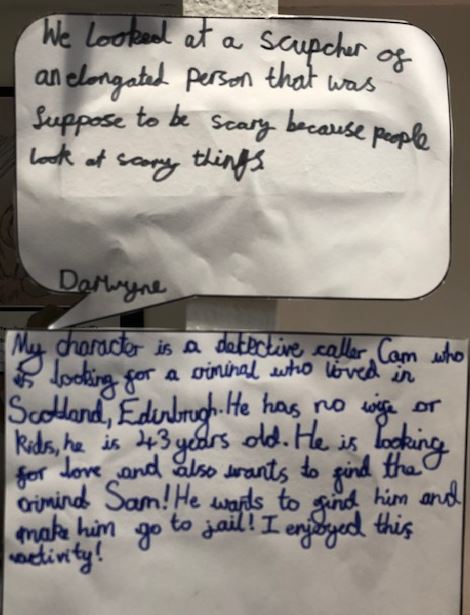 We Looked at a scupcher of
an elongated person that was
Suppose to be scary because people
look at scary things
Darwyne
My character is a detective caller Cam who
is looking for a criminal who loved in
Scotland, Edinbrugh. He has no wife or
kids, he is 43 years old. He is looking
for love and also wants to find the
criminal Sam! He wants to find him and
make him go to jail! I enjoyed this
activity!